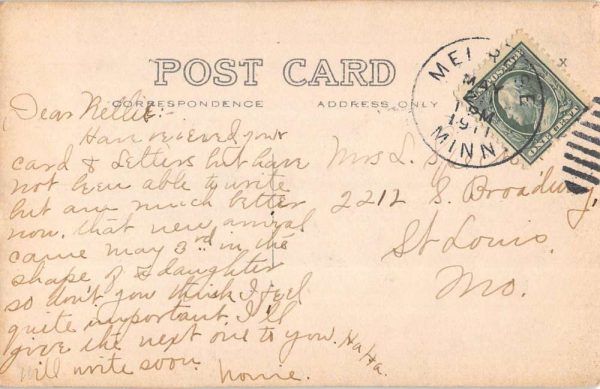 POST CARD
CORRESPONDENCE
ADDRESS ONLY
x
MELROSE
MAY
1 PM
1911
MINN.
Dear Nellie:-
Have recieved your
card & letters but have
not been able to write
but am much better
now. that new arrival
came may 3rd in the
shape of a daughter
so don't you think I feel
quite important I'll
give the next one to you. Ha Ha.
will write soon.
Mrs L.
2212 S. Broadway,
St Louis.
Mo.